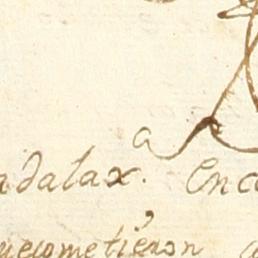 a
adalax. Enc
uecometieron